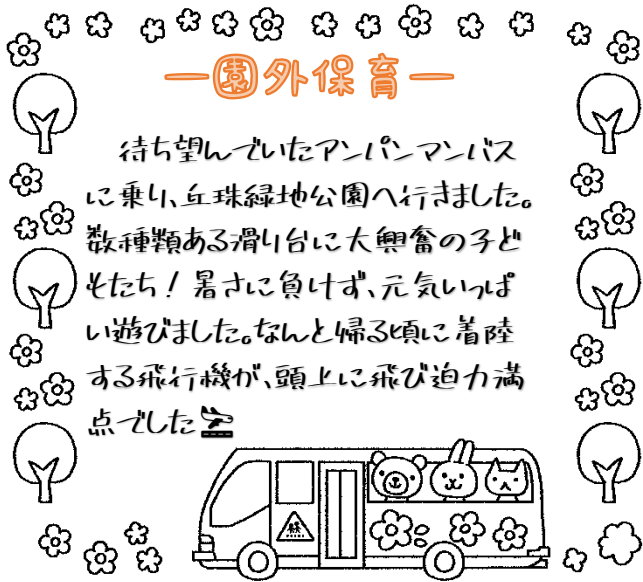 ―園外保育―
待ち望んでいたアンパンマンバス
に乗り、丘珠緑地公園へ行きました。
数種類ある滑り台に大興奮の子ど
もたち！暑さに負けず、元気いっぱ
い遊びました。なんと帰る頃に着陸
する飛行機が、頭上に飛び迫力満
点でした